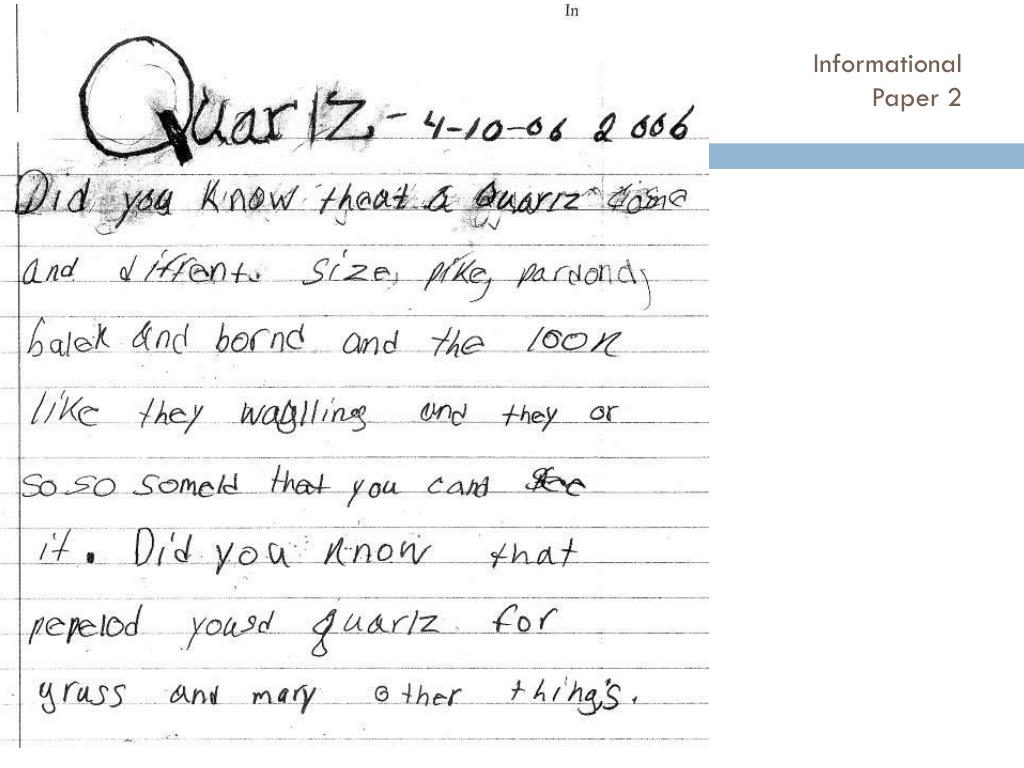 In
Informational
Paper 2
Quartz - 4-10-06 2006
Did you know theat a Quartz come
and diffent. size, pike, pardond,
balek and bornd and the loon
like they waglling and they or
so so someld that you cand see
it. Did you know that
pepelod yousd quartz for
gruss and many other thing's.